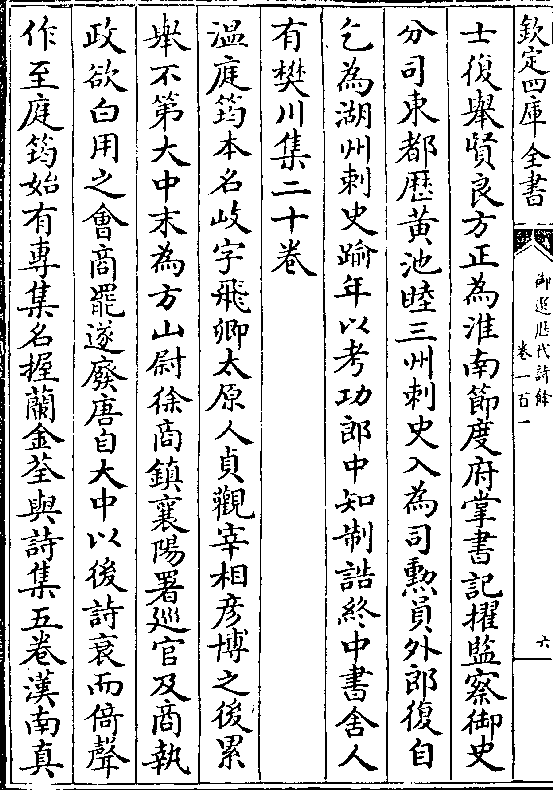 欽定四庫全書
御選歷代詩餘
卷一百一
六
士復舉賢良方正為淮南節度府掌書記擢監察御史
分司東都歷黃池睦三州刺史入為司勲員外郎復自
乞為湖州刺史踰年以考功郎中知制誥終中書舍人
有樊川集二十卷
溫庭筠本名岐字飛卿太原人貞觀宰相彦博之後累
舉不第大中末為方山尉徐商鎮襄陽署巡官及商執
政欲白用之會商罷遂廢唐自大中以後詩衰而倚聲
作至庭筠始有專集名握蘭金荃與詩集五卷漢南真